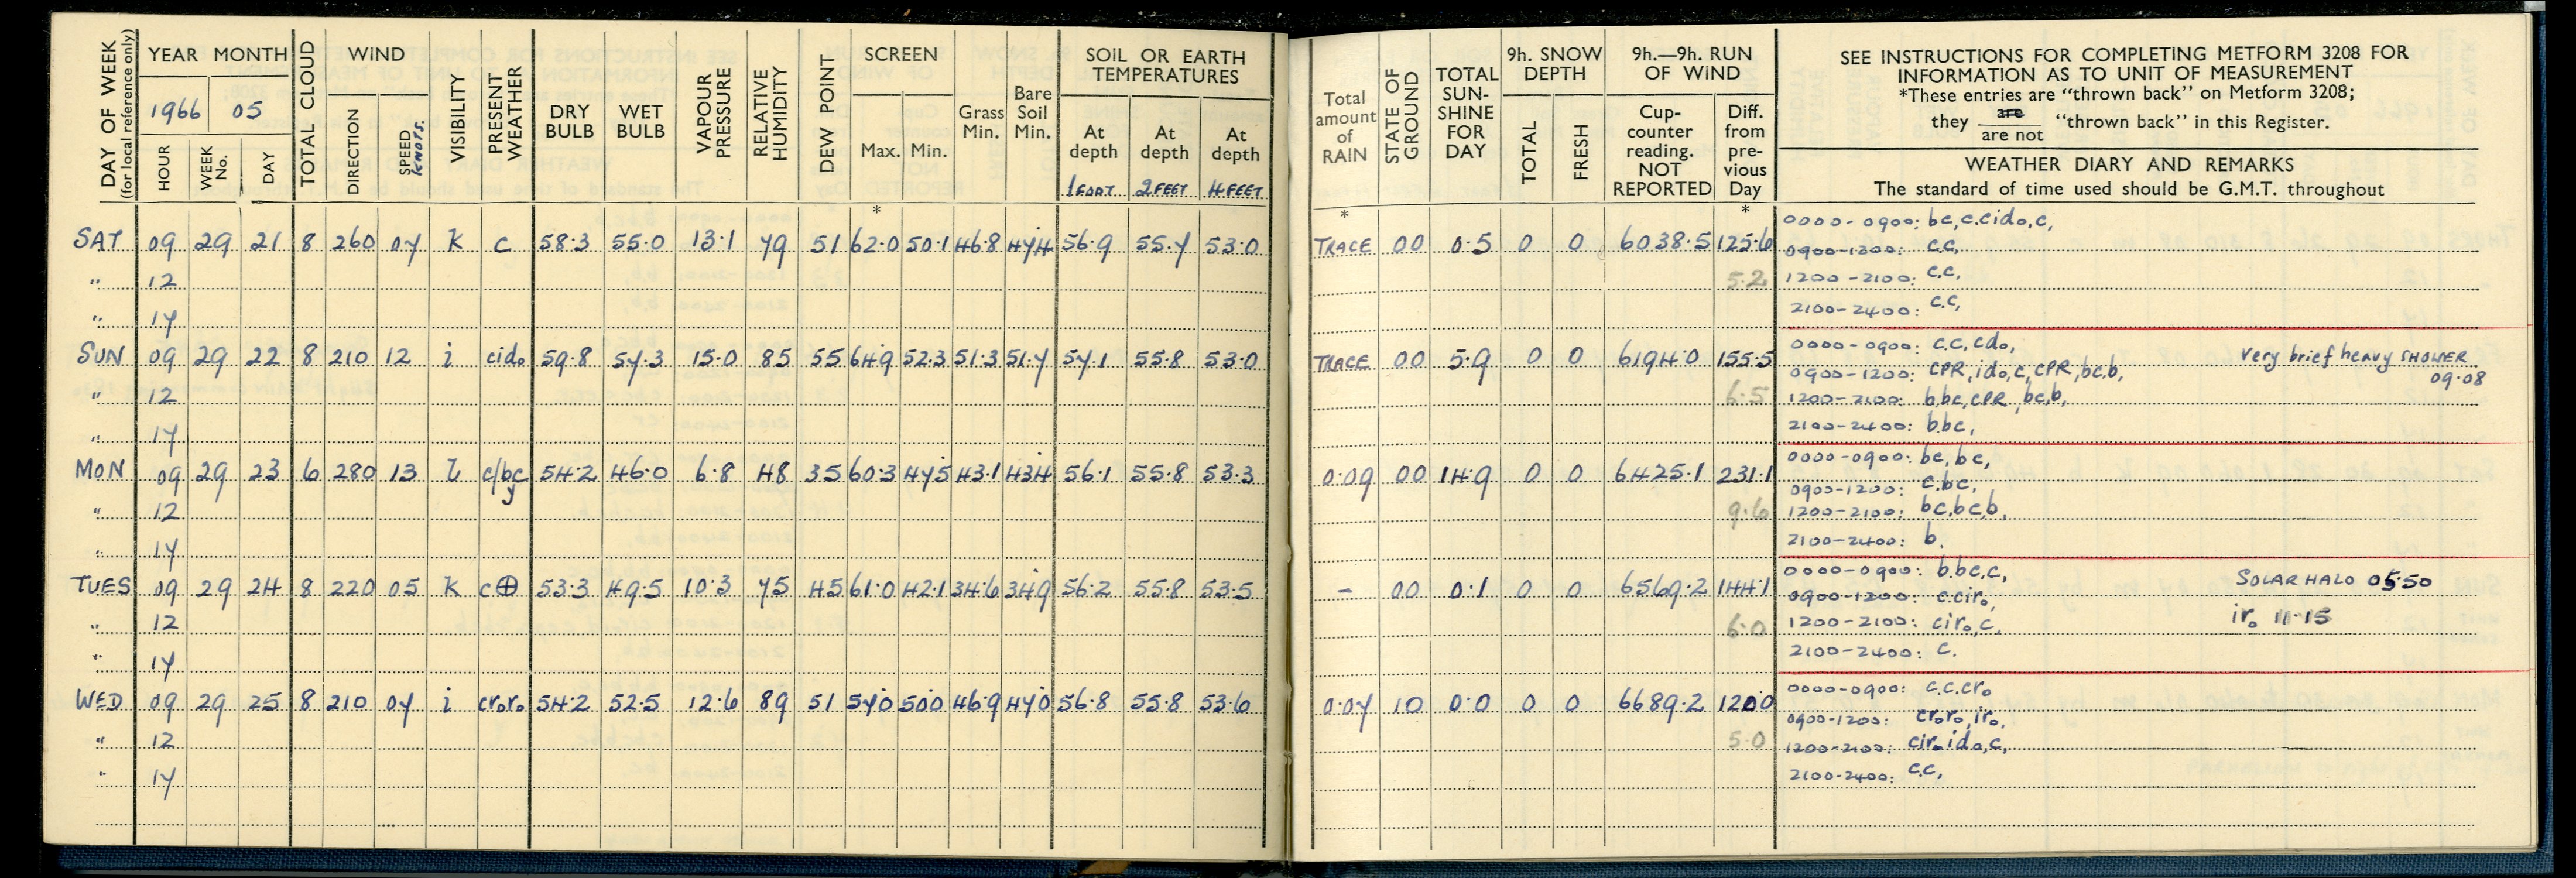 DAY OF WEEK
(for local reference only)
YEAR MONTH
1966 05
HOUR
WEEK No.
DAY
TOTAL CLOUD
WIND
DIRECTION
SPEED KNOTS.
VISIBILITY
PRESENT WEATHER
DRY BULB
WET BULB
VAPOUR PRESSURE
RELATIVE HUMIDITY
DEW POINT
SCREEN
Max. Min.
*
Grass Min.
Bare Soil Min.
SOIL OR EARTH TEMPERATURES
At depth 1 FOOT
At depth 2 FEET
At depth 4 FEET
Total amount of RAIN
*
STATE OF GROUND
TOTAL SUN-SHINE FOR DAY
9h. SNOW DEPTH
TOTAL
FRESH
9h.—9h. RUN OF WIND
Cup-counter reading. NOT REPORTED
Diff. from pre-vious Day
*
SEE INSTRUCTIONS FOR COMPLETING METFORM 3208 FOR
INFORMATION AS TO UNIT OF MEASUREMENT
*These entries are "thrown back" on Metform 3208;
they are / are not "thrown back" in this Register.
WEATHER DIARY AND REMARKS
The standard of time used should be G.M.T. throughout
SAT 09 29 21 8 260 07 K c 58.3 55.0 13.1 79 51 62.0 50.1 46.8 47.4 56.9 55.7 53.0 TRACE 00 0.5 0 0 6038.5 125.6
0000-0900: bc,c.cido,c,
0900-1200: c.c,
" 12 5.2
1200-2100: c.c,
" 17
2100-2400: c.c,
SUN 09 29 22 8 210 12 i cido 59.8 57.3 15.0 85 55 64.9 52.3 51.3 51.7 57.1 55.8 53.0 TRACE 00 5.9 0 0 6194.0 155.5
0000-0900: c.c,cdo, very brief heavy SHOWER 09.08
0900-1200: cPR,ido,c,cPR,bc,b,
" 12 6.5
1200-2100: b.bc,cPR,bc,b,
" 17
2100-2400: b.bc,
MON 09 29 23 6 280 13 c/bc y 54.2 46.0 6.8 48 35 60.3 47.5 43.1 43.4 56.1 55.8 53.3 0.09 00 14.9 0 0 6425.1 231.1
0000-0900: bc,bc,
0900-1200: c.bc,
" 12 9.6
1200-2100: bc,bc,b,
" 17
2100-2400: b.
TUES 09 29 24 8 220 05 K c⊕ 53.3 49.5 10.3 75 45 61.0 42.1 34.6 34.9 56.2 55.8 53.5 - 00 0.1 0 0 6569.2 144.1
0000-0900: b.bc,c, SOLAR HALO 05.50
0900-1200: c.ciro, iro 11.15
" 12 6.0
1200-2100: ciro,c,
" 17
2100-2400: c.
WED 09 29 25 8 210 07 i croro 54.2 52.5 12.6 89 51 57.0 50.0 46.9 47.0 56.8 55.8 53.6 0.07 10 0.0 0 0 6689.2 120.0
0000-0900: c.c.cro
0900-1200: croro,iro,
" 12 5.0
1200-2100: ciro ido,c,
" 17
2100-2400: c.c,